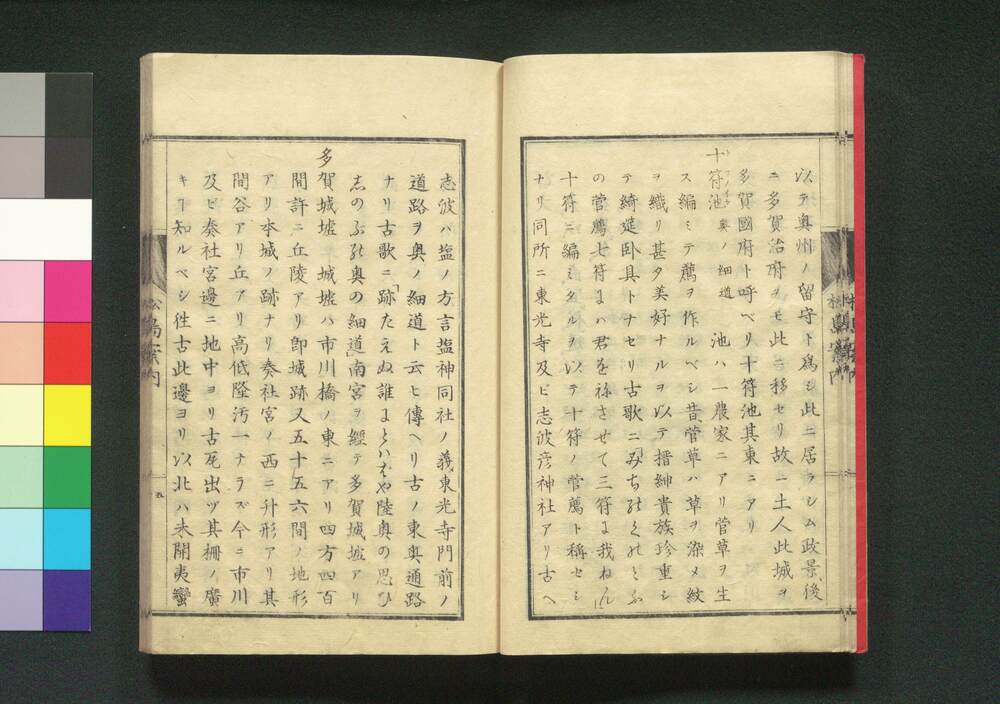 以テ奥州ノ留守ト為シ此ニ居ラシム政景後
ニ多賀治府ヲモ此ニ移セリ故ニ土人此城ヲ
多賀國府ト呼ベリ十符池其東ニアリ
十符池 奥ノ細道 池ハ一農家ニアリ菅草ヲ生
ス編ミテ薦ヲ作ルベシ昔菅草ハ草ヲ染メ紋
ヲ織リ甚タ美好ナルヲ以テ搢紳貴族珍重シ
テ綺筵卧具トナセリ古歌ニ「みちのくのとふ
の菅薦七符にハ君を祢させて三符に我ねん」
十符ニ編ミタルヲ以テ十符ノ菅薦ト稱セシ
ナリ同所ニ東光寺及ビ志波彦神社アリ古ヘ
志波ハ塩ノ方言塩神同社ノ義東光寺門前ノ
道路ヲ奥ノ細道ト云ヒ傳ヘリ古ノ東奥通路
ナリ古歌ニ「跡たえぬ誰にとハばや陸奥の思ひ
志のぶの奥の細道」南宮ヲ經テ多賀城址アリ
多賀城墟 城墟ハ市川橋ノ東ニアリ四方四百
間許ニ丘陵アリ即城跡又五十五六間ノ地形
アリ本城ノ跡ナリ奏社宮ノ西ニ升形アリ其
間谷アリ丘アリ高低隆汚一ナラズ今ニ市川
及ビ奏社宮邊ニ地中ヨリ古瓦出ヅ其柵ノ廣
キヿ知ルベシ徃古此邊ヨリ以北ハ未開夷蠻
松島案内
五